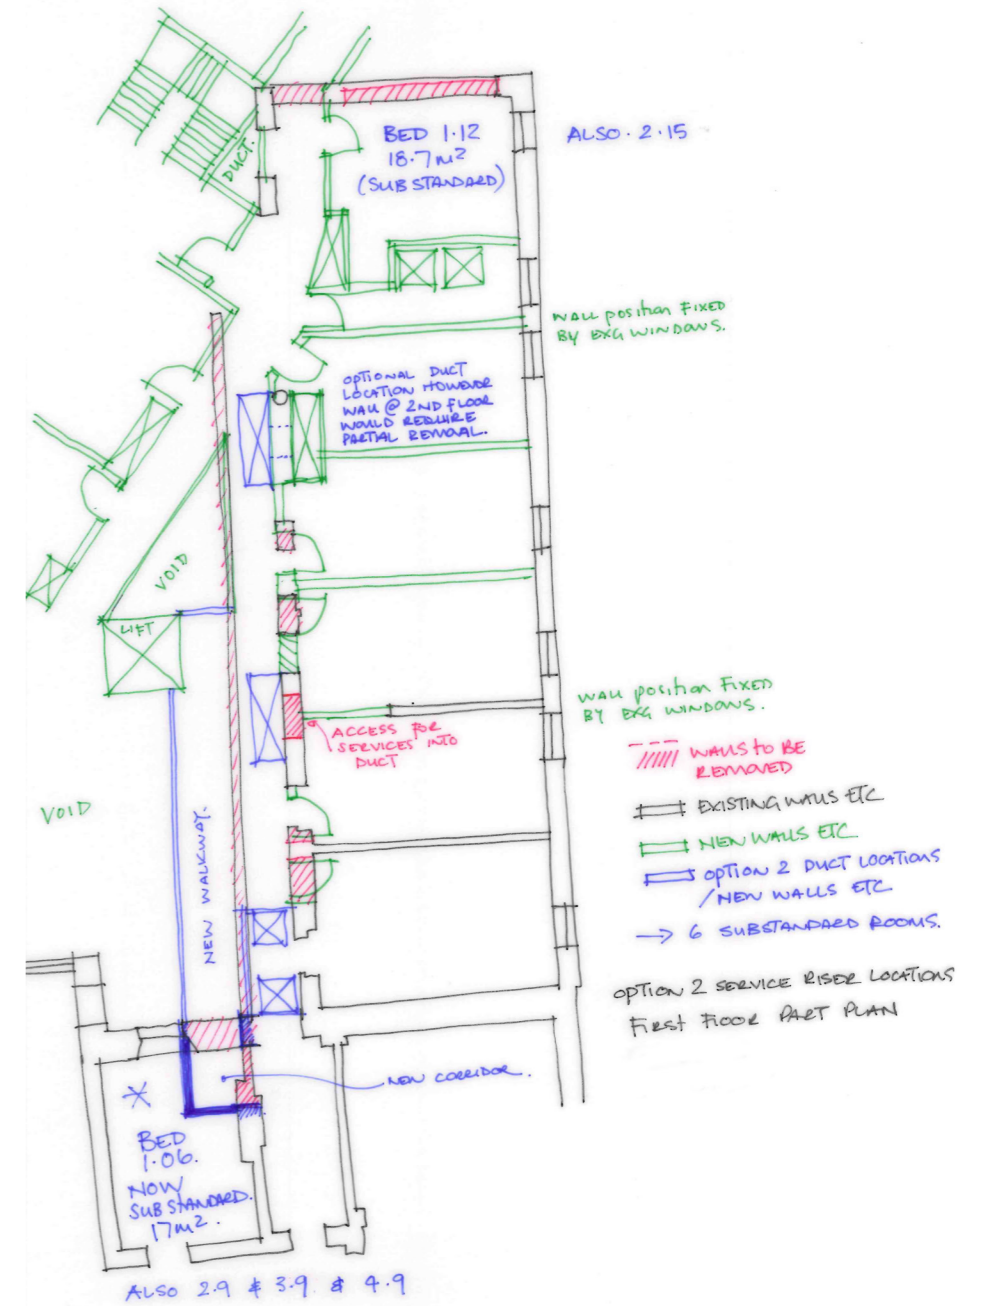 DUCT.
BED 1.12
18.7m²
(SUBSTANDARD)
ALSO. 2.15
WALL position FIXED
BY EXG WINDOWS.
OPTIONAL DUCT
LOCATION HOWEVER
WALL @ 2ND FLOOR
WOULD REQUIRE
PARTIAL REMOVAL.
VOID
LIFT
WALL position FIXED
BY EXG WINDOWS.
ACCESS FOR
SERVICES INTO
DUCT
WALLS to BE
REMOVED
EXISTING WALLS ETC
NEW WALLS ETC
OPTION 2 DUCT LOCATIONS
/NEW WALLS ETC
→ 6 SUBSTANDARD ROOMS.
VOID
NEW WALKWAY.
OPTION 2 SERVICE RISER LOCATIONS
FIRST FLOOR PART PLAN
NEW CORRIDOR.
BED
1.06.
NOW
SUBSTANDARD.
17m².
ALSO 2.9 & 3.9 & 4.9